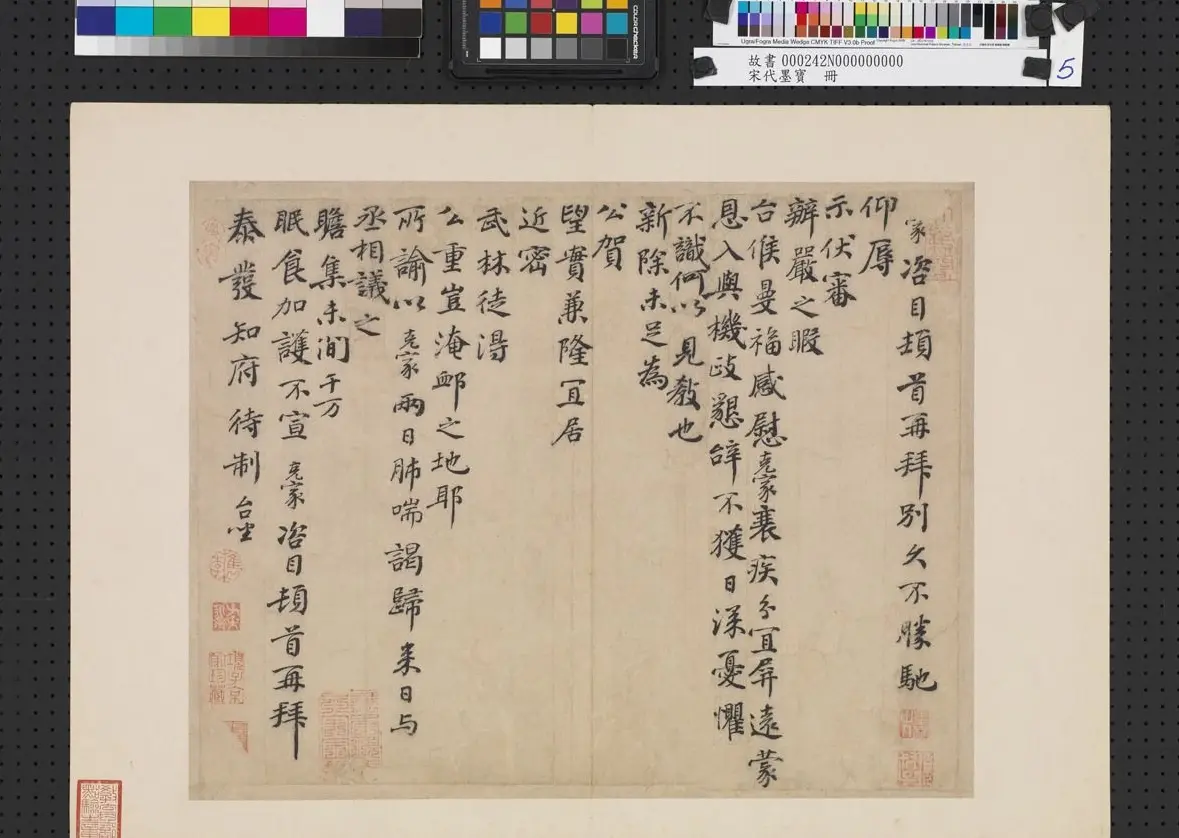 Ugra/Fogra Media Wedge CMYK TIFF V3.0b Proof
故書 000242N000000000
宋代墨寶 冊
5
家咨目頓首再拜別久不勝馳
仰辱
示伏審
辦嚴之暇
台候曼福感慰克家衰疾分宜屏遠蒙
恩入輿機政懇辭不獲日深憂懼
不識何以見教也
新除未足為
公賀
望實兼隆宜居
近密
武林徒得
公重豈淹卹之地耶
所諭以克家兩日肺喘謁歸来日与
丞相議之
瞻集未間千万
眠食加護不宣克家咨目頓首再拜
泰發知府待制台坐